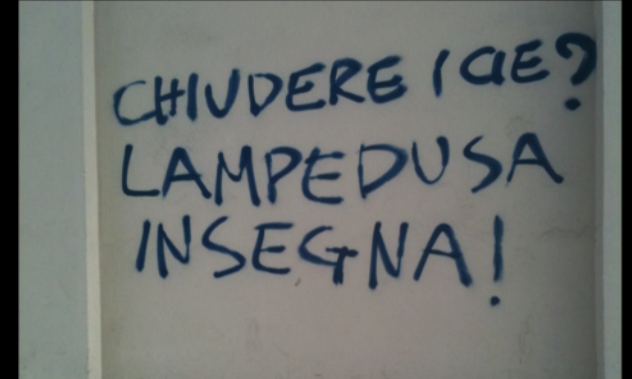 CHIUDERE I CIE?
LAMPEDUSA
INSEGNA!